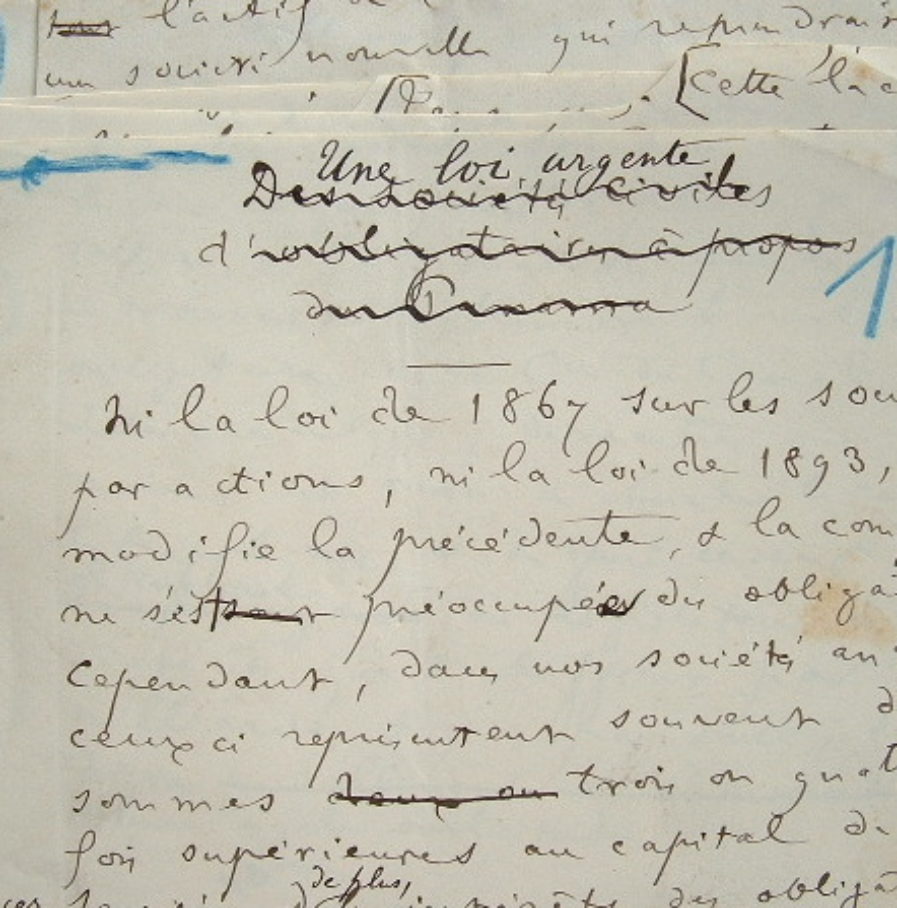 tous l'actif de
une société nouvelle qui reprendrait
[Cette
Une loi urgente
Des sociétés civiles
d'obligataires à propos
du Panama
1
Ni la loi de 1867 sur les soc
par actions, ni la loi de 1893,
modifie la précédente, & la com
ne s'est préoccupée des obliga
Cependant, dans nos sociétés an
ceux ci représentent souvent d
sommes deux ou trois ou quat
fois supérieures au capital de
de plus,
intérêts des obligat